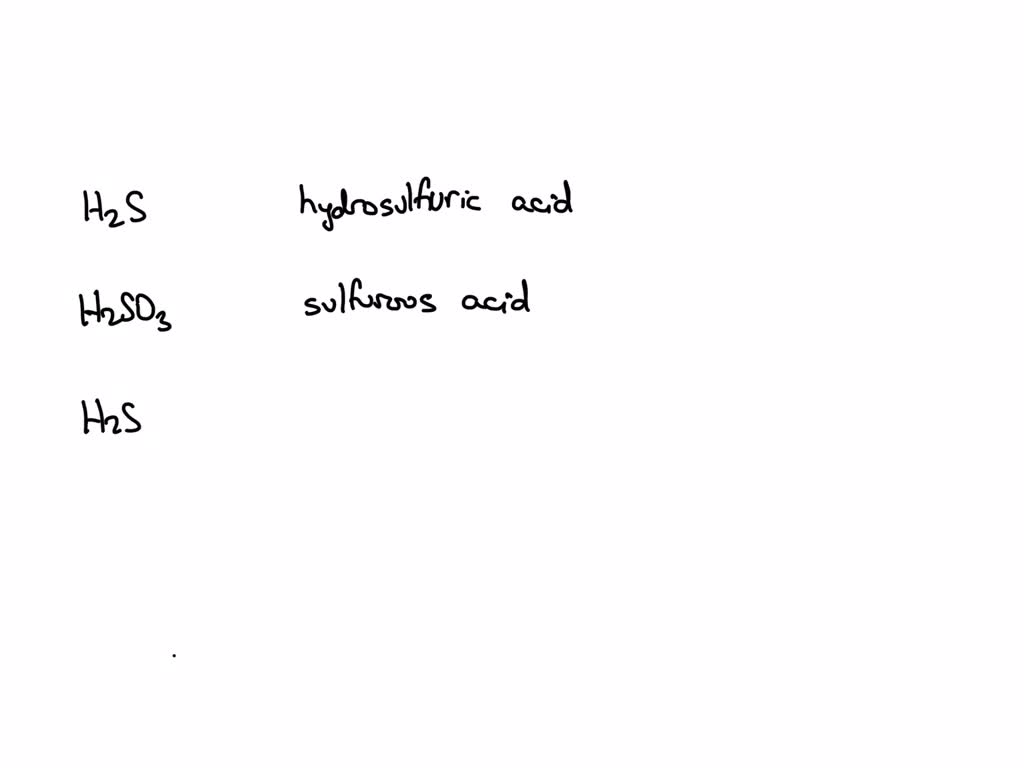 H₂S hydrosulfuric acid
H₂SO₃ sulfurous acid
H₂S